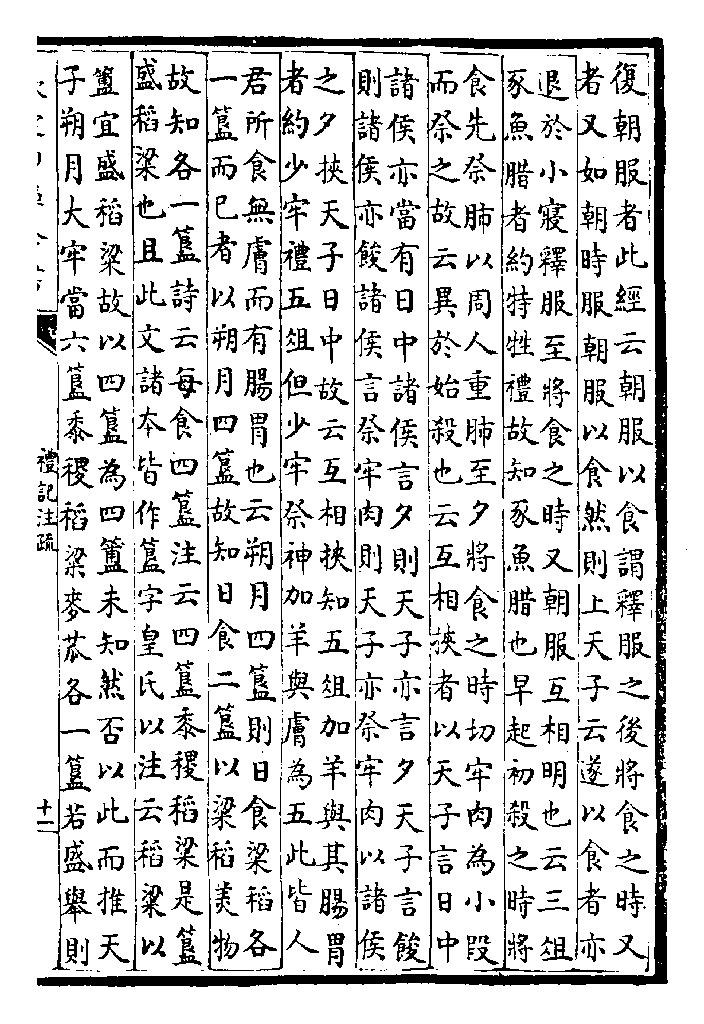 復朝服者此經云朝服以食謂釋服之後將食之時又
者又如朝時服朝服以食然則上天子云遂以食者亦
退於小寢釋服至將食之時又朝服互相明也云三俎
豕魚腊者約特牲禮故知豕魚腊也早起初殺之時將
食先祭肺以周人重肺至夕將食之時切牢肉為小段
而祭之故云異於始殺也云互相挾者以天子言日中
諸侯亦當有日中諸侯言夕則天子亦言夕天子言餕
則諸侯亦餕諸侯言祭牢肉則天子亦祭牢肉以諸侯
之夕挾天子日中故云互相挾知五俎加羊與其腸胃
者約少牢禮五俎但少牢祭神加羊與膚為五此皆人
君所食無膚而有腸胃也云朔月四簋則日食粱稻各
一簋而已者以朔月四簋故知日食二簋以粱稻美物
故知各一簋詩云每食四簋注云四簋黍稷稻粱是簋
盛稻粱也且此文諸本皆作簋字皇氏以注云稻粱以
簠宜盛稻粱故以四簋為四簠未知然否以此而推天
子朔月大牢當六簋黍稷稻粱麥苽各一簋若盛舉則
禮記注疏
十一